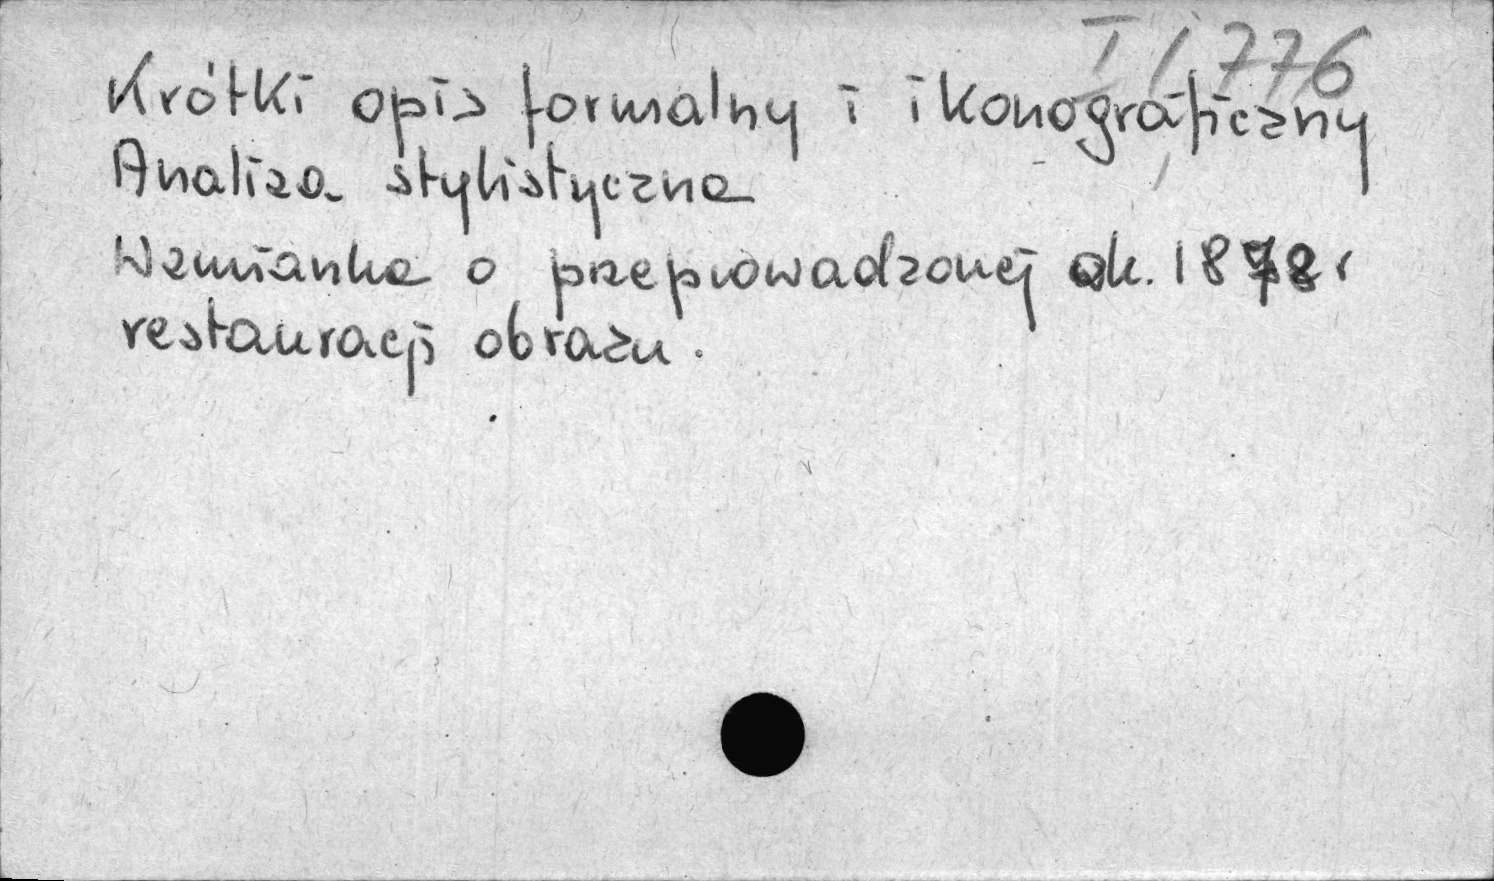 I, 776
Krótki opis formalny i ikonograficzny
Analiza stylistyczna
Wzmianka o przeprowadzonej ok. 1878 r
restauracji obrazu.